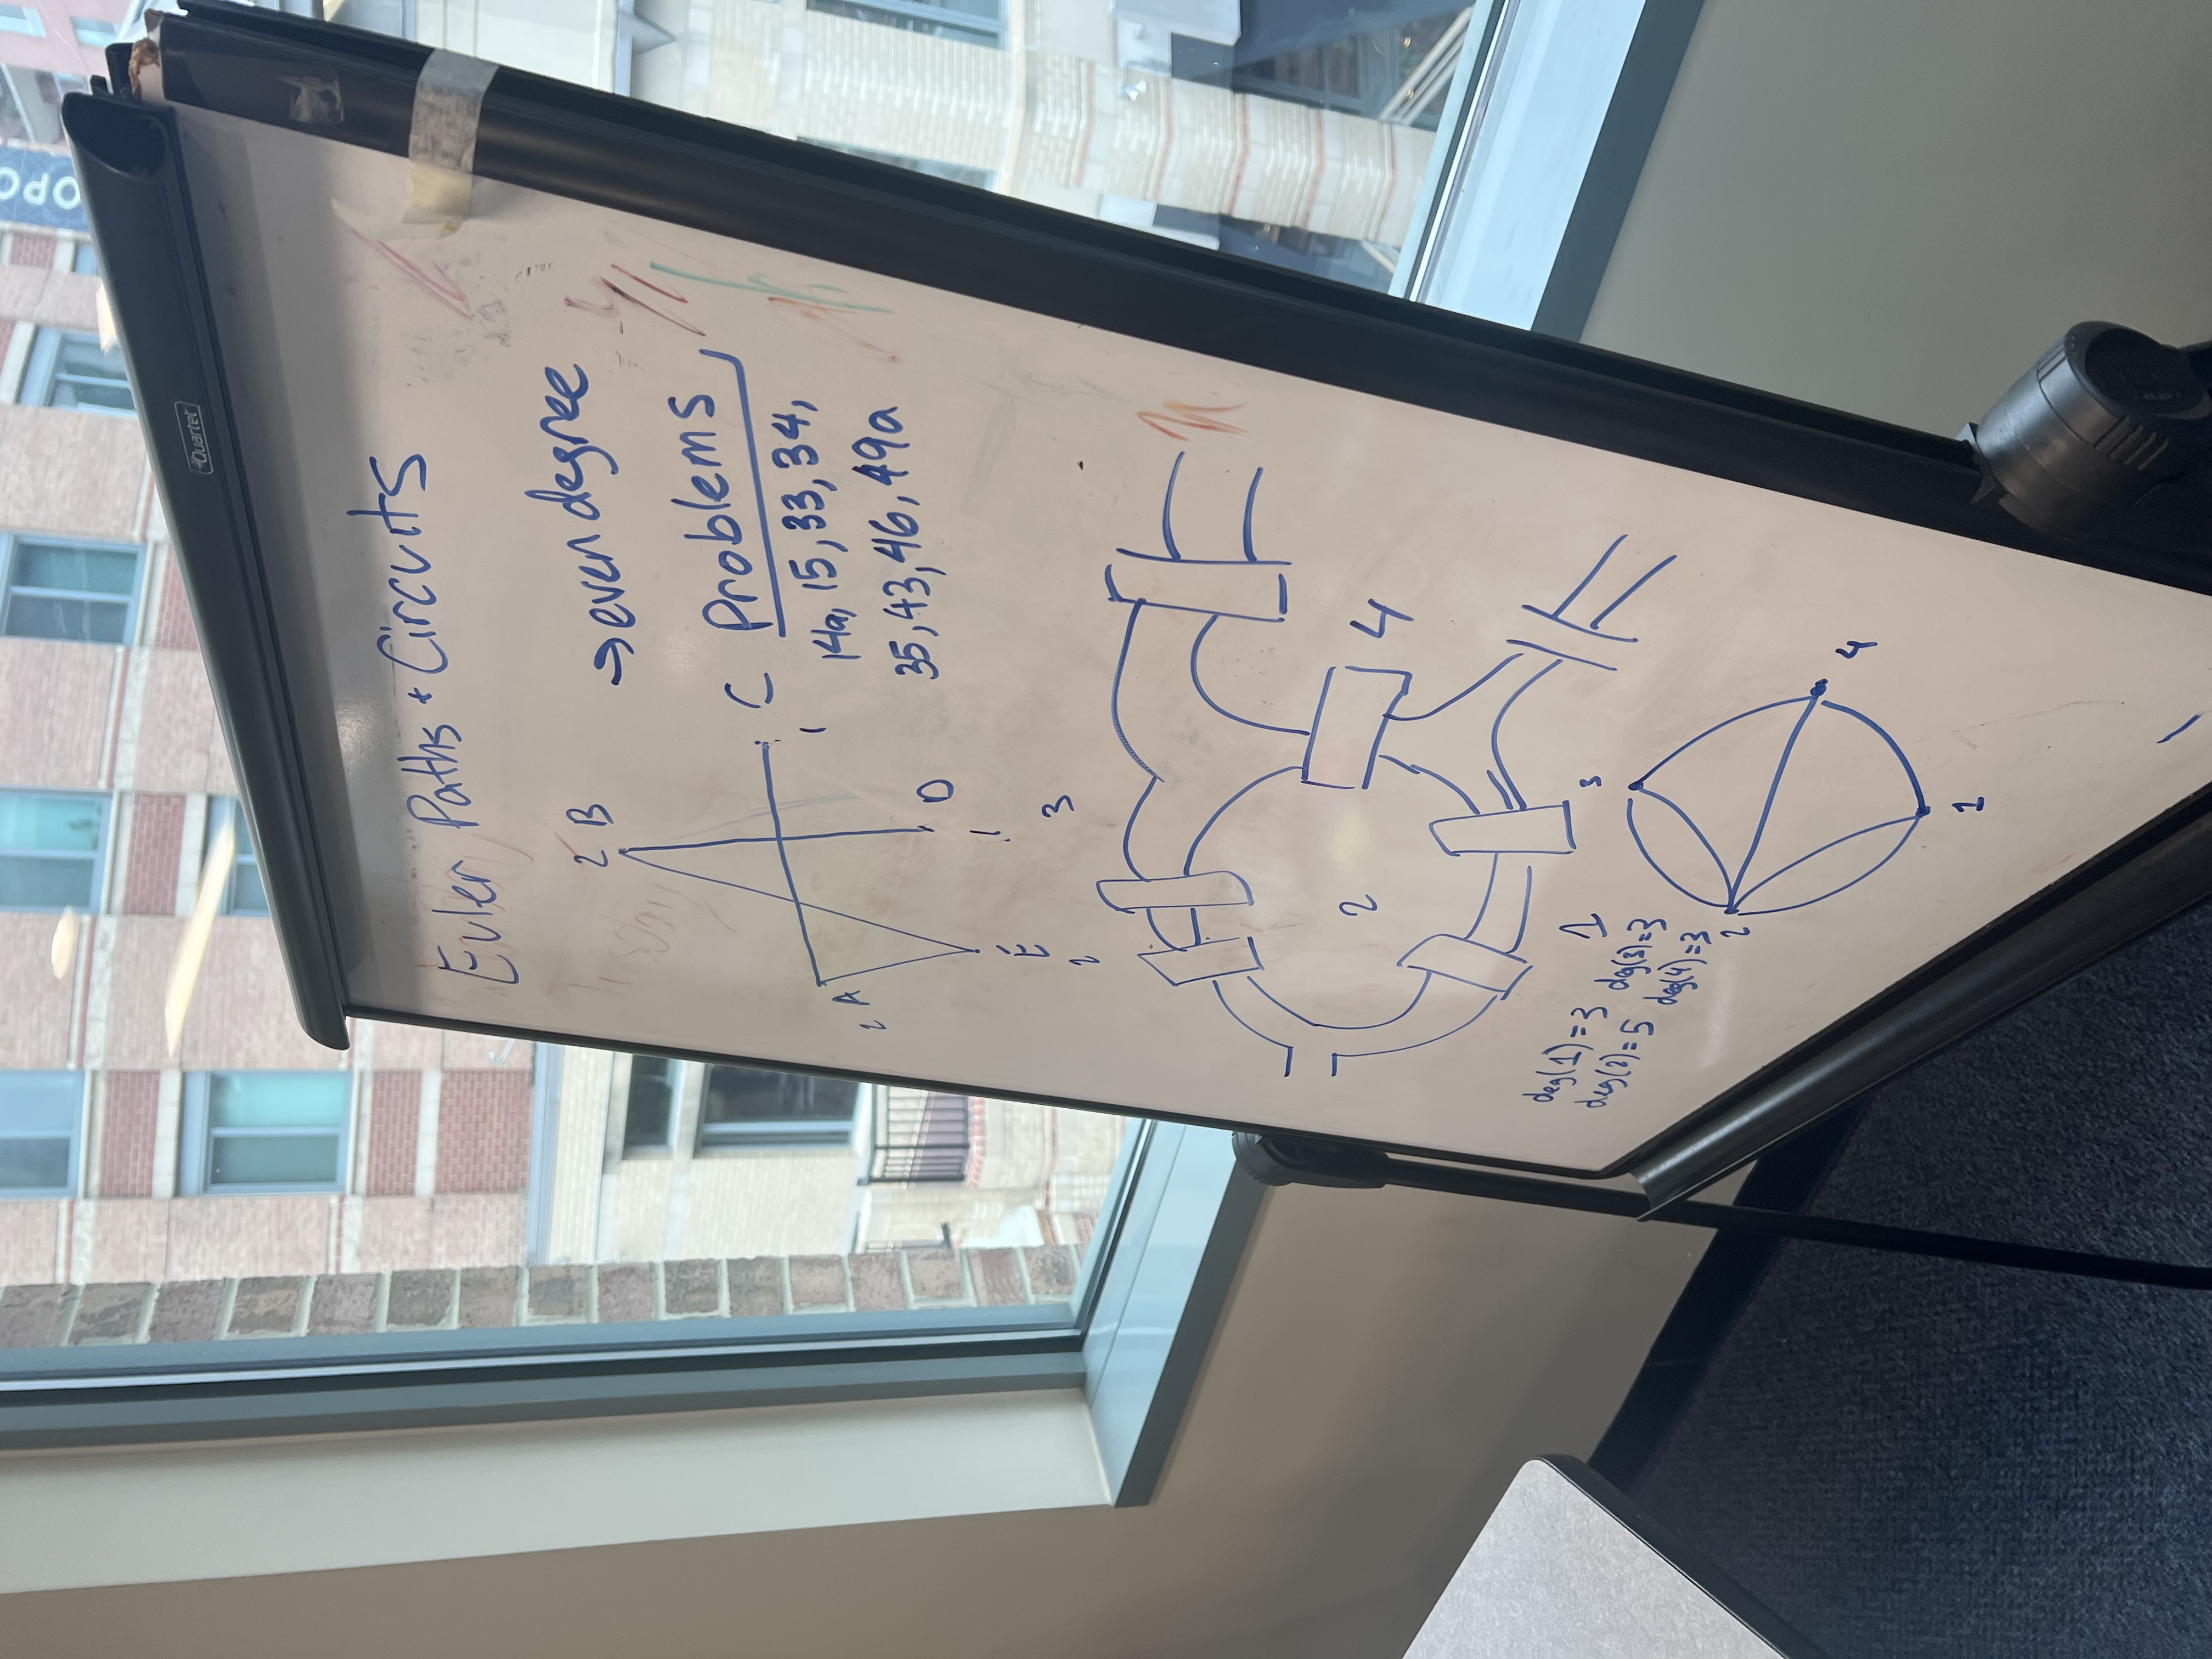 Quartet
Euler Paths + Circuits
→ even degree
2 B
C
1
2 A
D
1
E
2
Problems
14a, 15, 33, 34,
35, 43, 46, 49a
3
2
4
1
deg(1)=3 deg(3)=3
deg(2)=5 deg(4)=3
3
2
4
1
OPO